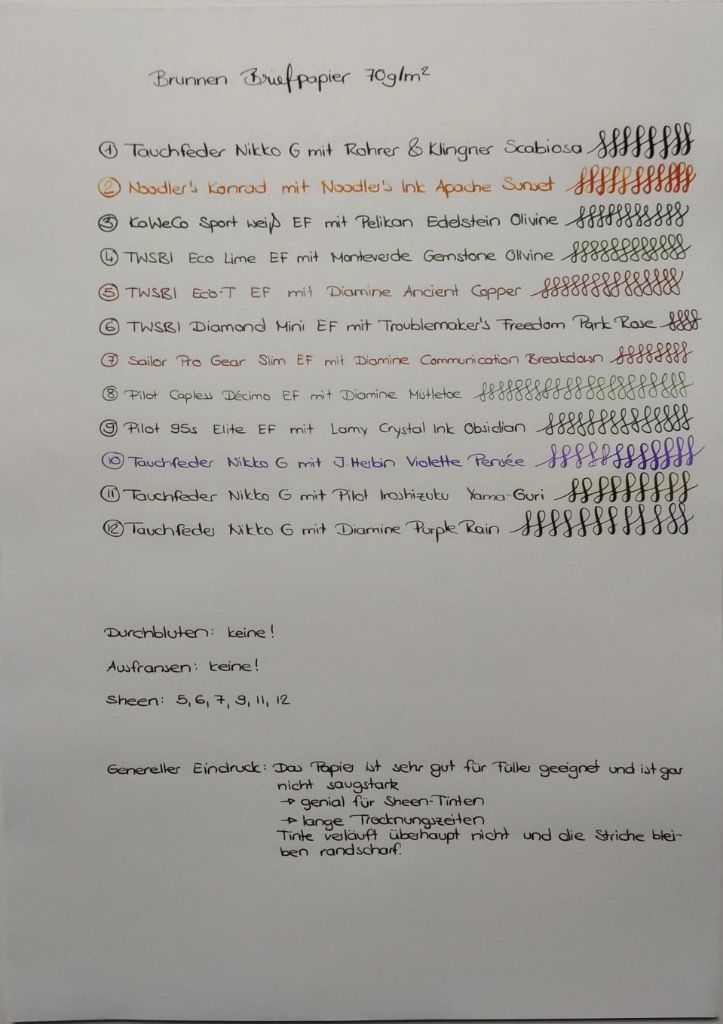 Brunnen Briefpapier 70g/m²
① Tauchfeder Nikko G mit Rohrer & Klingner Scabiosa
② Noodler's Konrad mit Noodler's Ink Apache Sunset
③ KaWeCo Sport weiß EF mit Pelikan Edelstein Olivine
④ TWSBI Eco Lime EF mit Monteverde Gemstone Olivine
⑤ TWSBI Eco-T EF mit Diamine Ancient Copper
⑥ TWSBI Diamond Mini EF mit Troublemaker's Freedom Park Rose
⑦ Sailor Pro Gear Slim EF mit Diamine Communication Breakdown
⑧ Pilot Capless Décimo EF mit Diamine Mistletoe
⑨ Pilot 95s Elite EF mit Lamy Crystal Ink Obsidian
⑩ Tauchfeder Nikko G mit J. Herbin Violette Pensée
⑪ Tauchfeder Nikko G mit Pilot Iroshizuku Yama-Guri
⑫ Tauchfeder Nikko G mit Diamine Purple Rain
Durchbluten: keine!
Ausfransen: keine!
Sheen: 5, 6, 7, 9, 11, 12
Genereller Eindruck: Das Papier ist sehr gut für Füller geeignet und ist gar
nicht saugstark
→ genial für Sheen-Tinten
→ lange Trocknungszeiten
Tinte verläuft überhaupt nicht und die Striche blei-
ben randscharf.